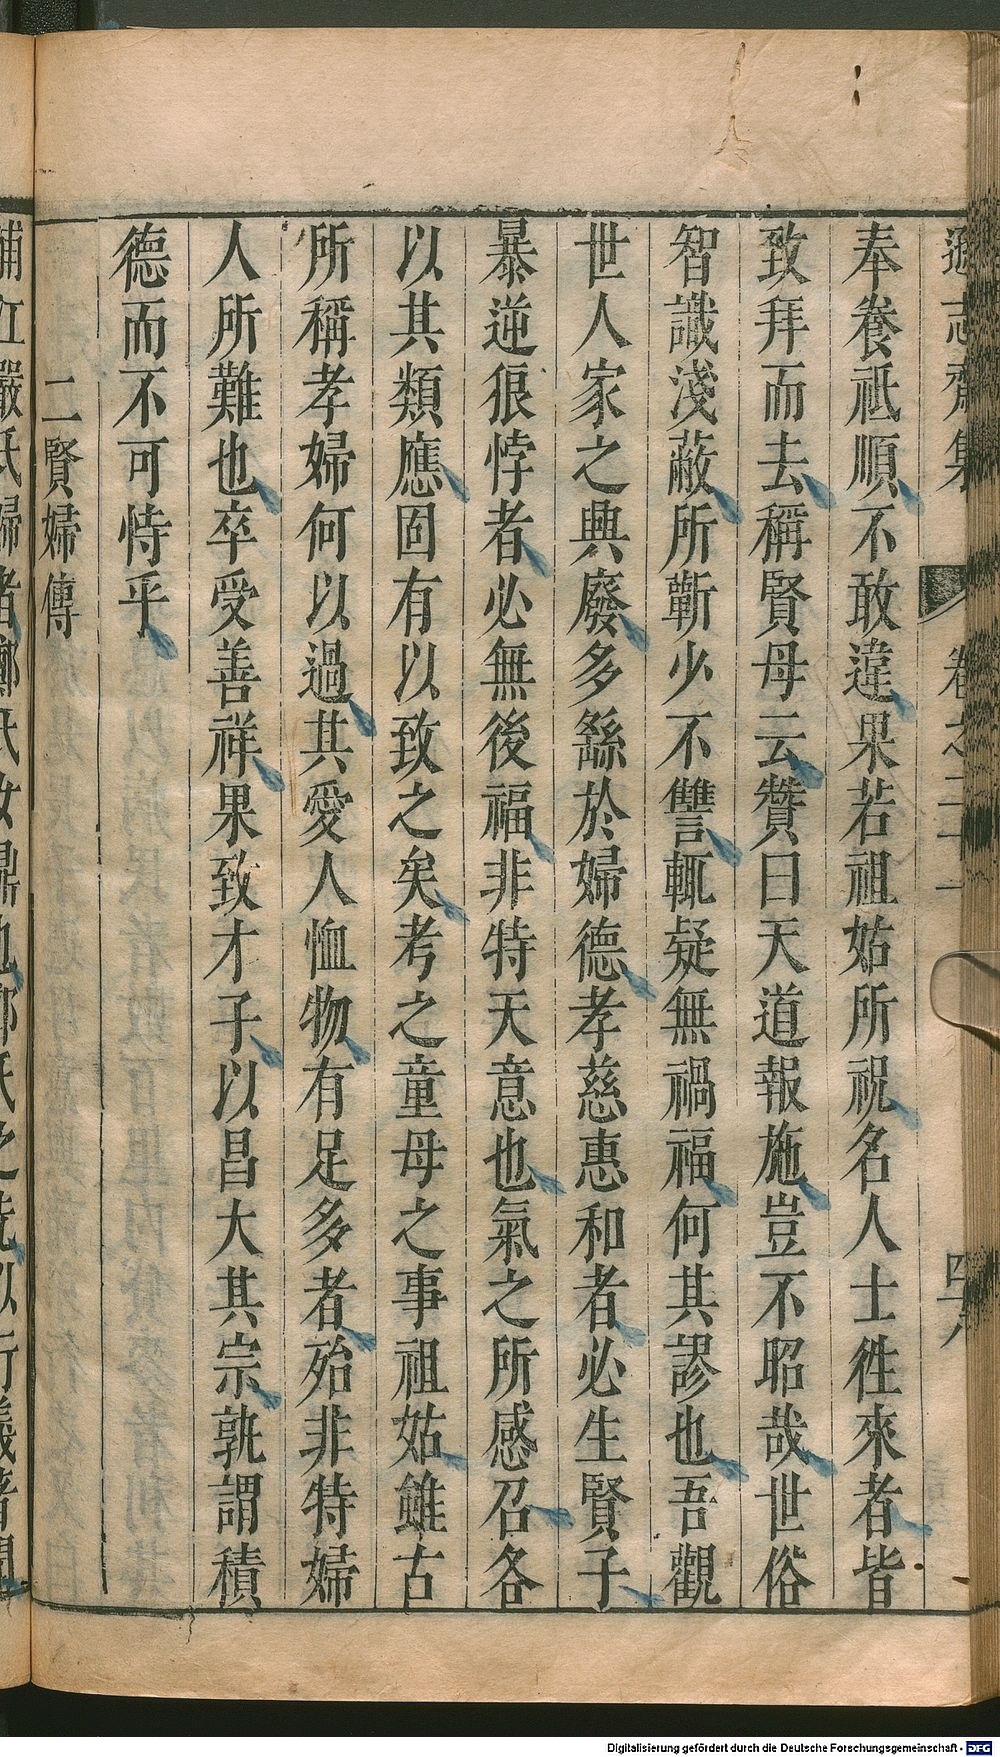 遜志齋集 卷之二十一 四十八
奉養祗順不敢違果若祖姑所祝名人士徃來者皆
致拜而去稱賢母云贊曰天道報施豈不昭哉世俗
智識淺蔽所蘄少不讐輒疑無禍福何其謬也吾觀
世人家之興廢多繇於婦德孝慈惠和者必生賢子
暴逆狠悖者必無後福非特天意也氣之所感召各
以其類應固有以致之矣考之童母之事祖姑雖古
所稱孝婦何以過其愛人恤物有足多者殆非特婦
人所難也卒受善祥果致才子以昌大其宗孰謂積
德而不可恃乎
二賢婦傳
浦江嚴氏婦者鄭氏女鼎也鄭氏之先以行義著聞
Digitalisierung gefördert durch die Deutsche Forschungsgemeinschaft - DFG